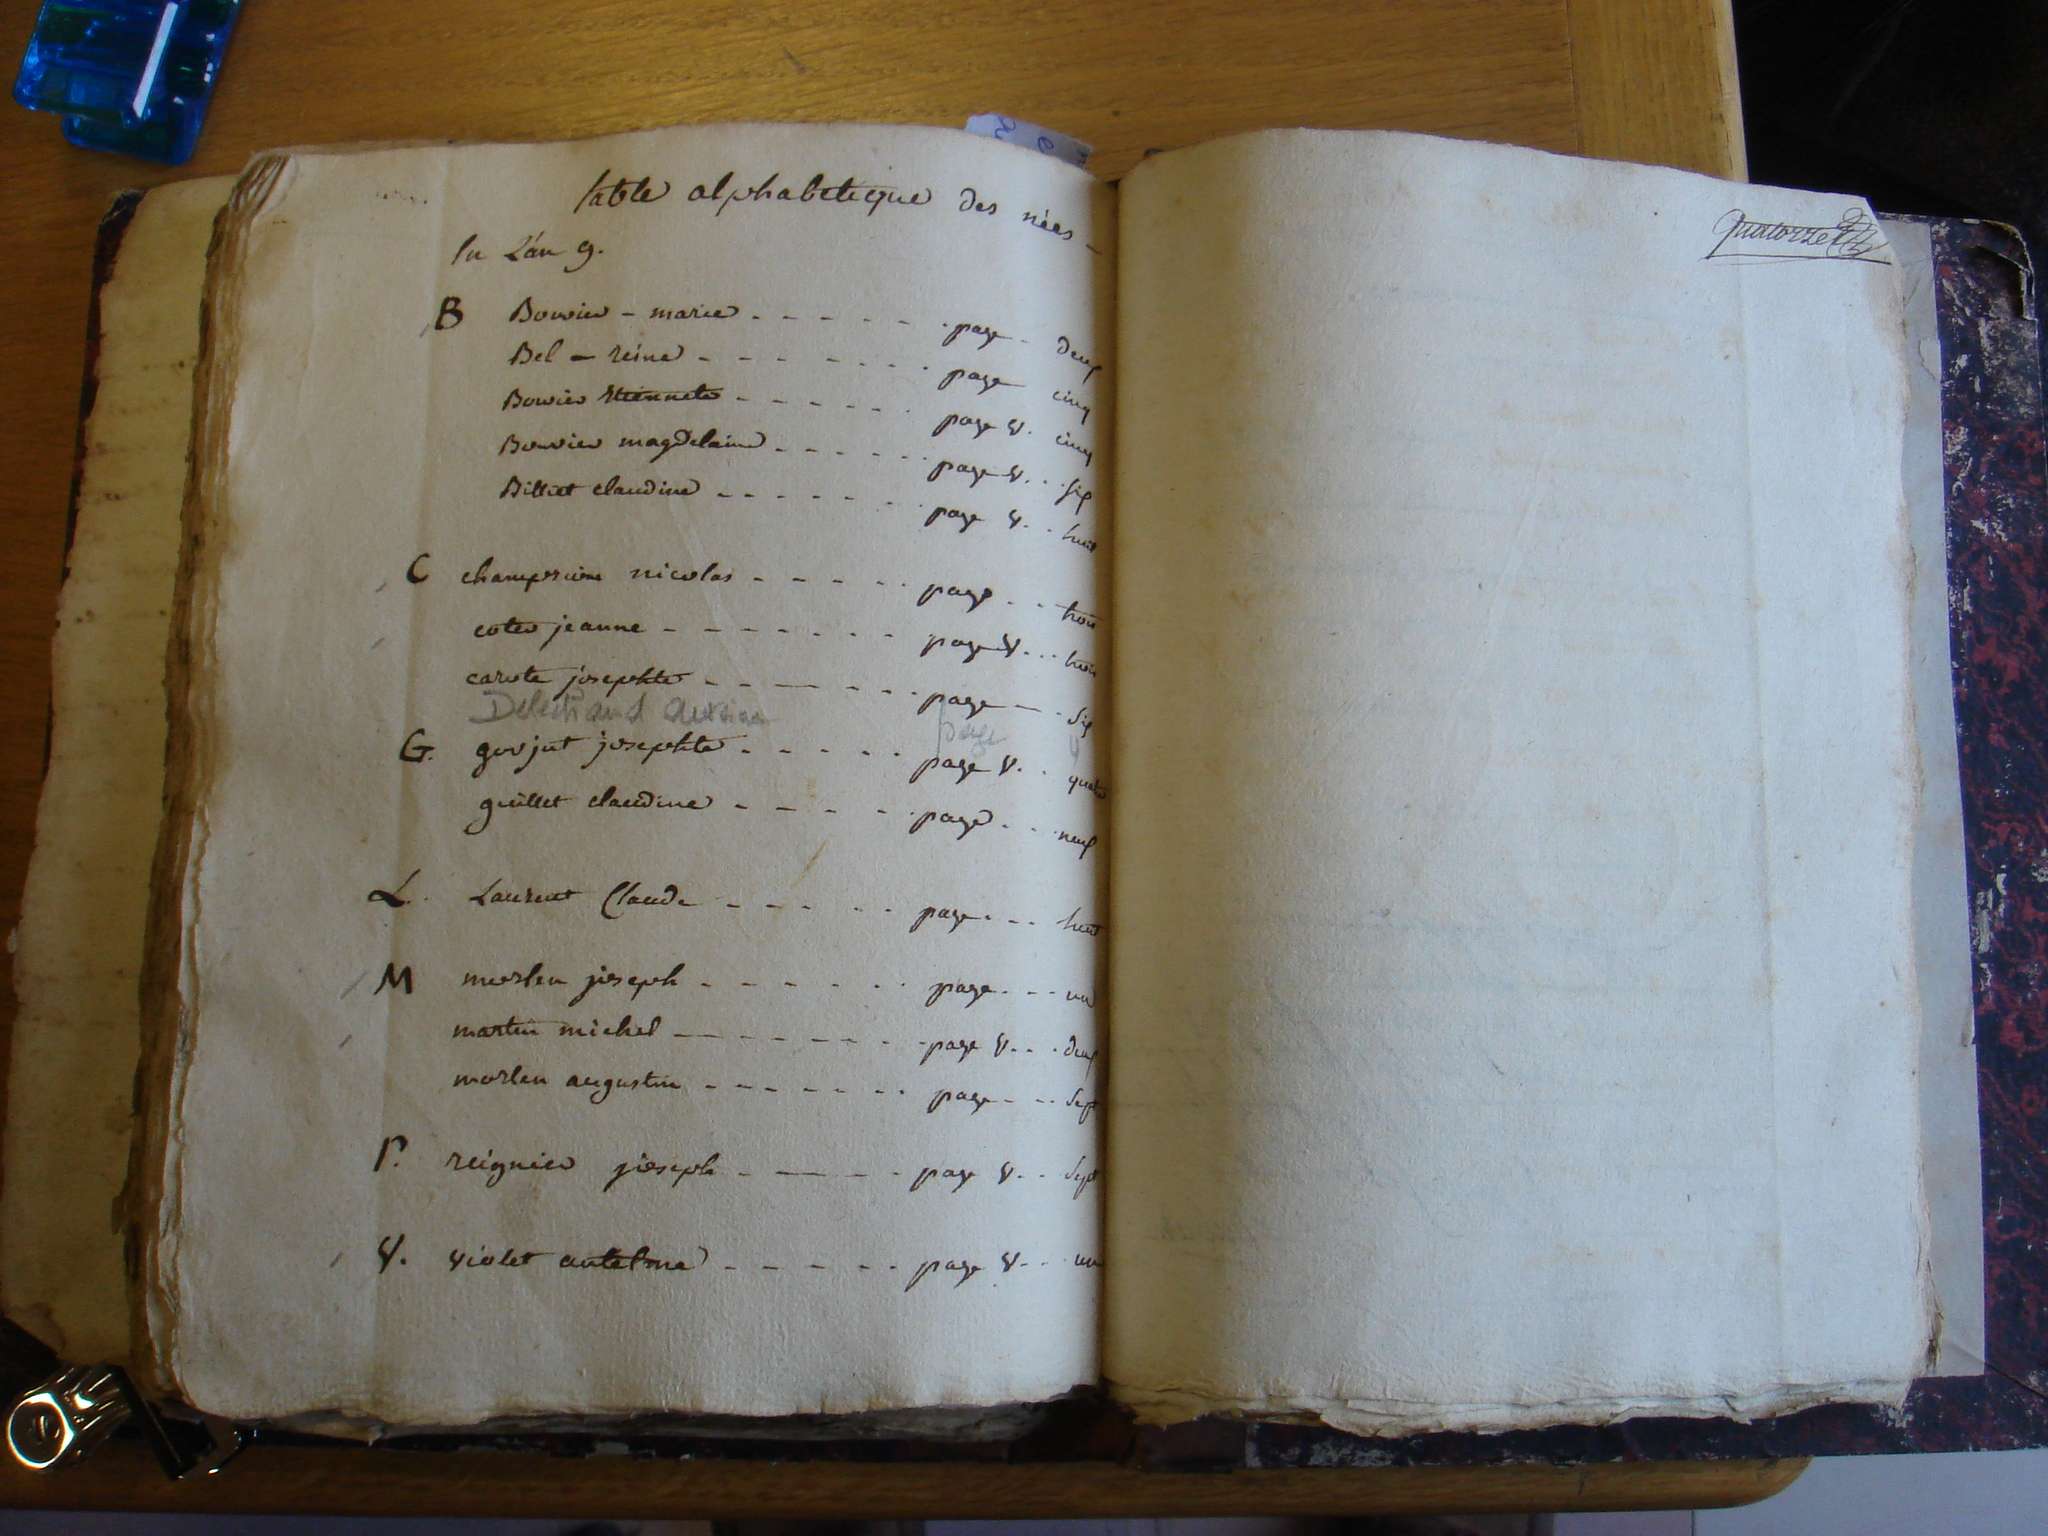 table alphabetique des nées -
En L'an 9.
B Bouvier - marie - - - - - - page - deux
Bel - reine - - - - - - page cinq
Bouvier etiennete - - - - - - page v. cinq
Bouvier magdelaine - - - - - - page v. - six
Billiet claudine - - - - - - page v. - huit
C nicolas - - - - - - page - - trois
coter jeanne - - - - - - page v. - - trois
carote josephte - - - - - - page - - six
page
G. goujut josephte - - - - - - page v. - quatre
guillet claudine - - - - - page - - neuf
L. Laurent Claude - - - - - page - - - huit
M merlen joseph - - - - - - page - - - un
martin michel - - - - - - page v. - - deux
morlen augustin - - - - - - page - - - sept
r. reignier joseph - - - - - page v. - - sept
V. violet antelme - - - - - page v. - - un
quatorze